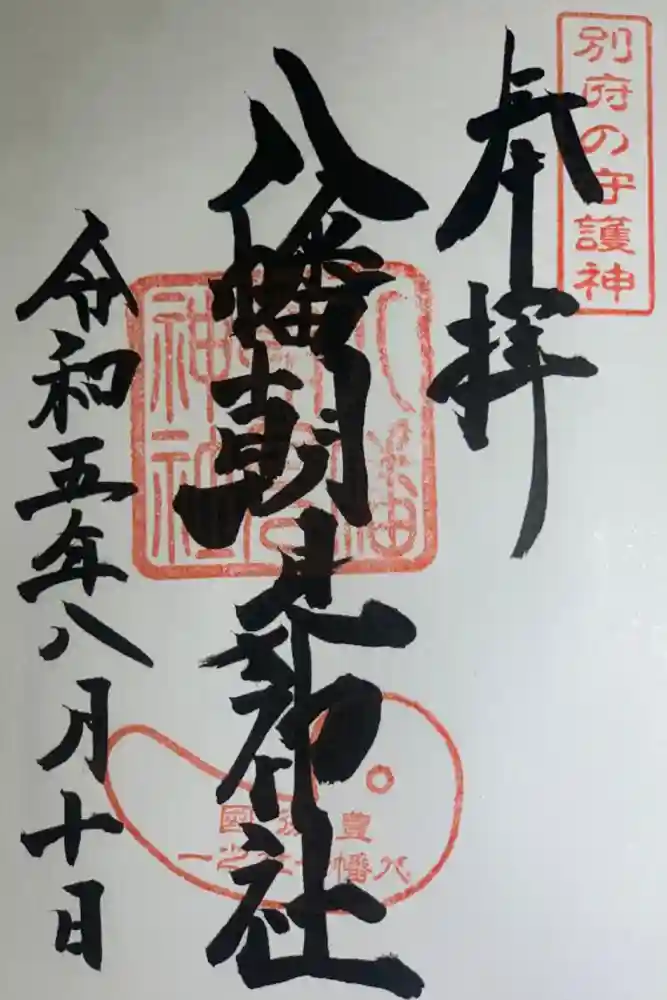 別府の守護神
奉拝
八幡朝見神社
令和五年八月十日
八幡朝見神社
豊後國